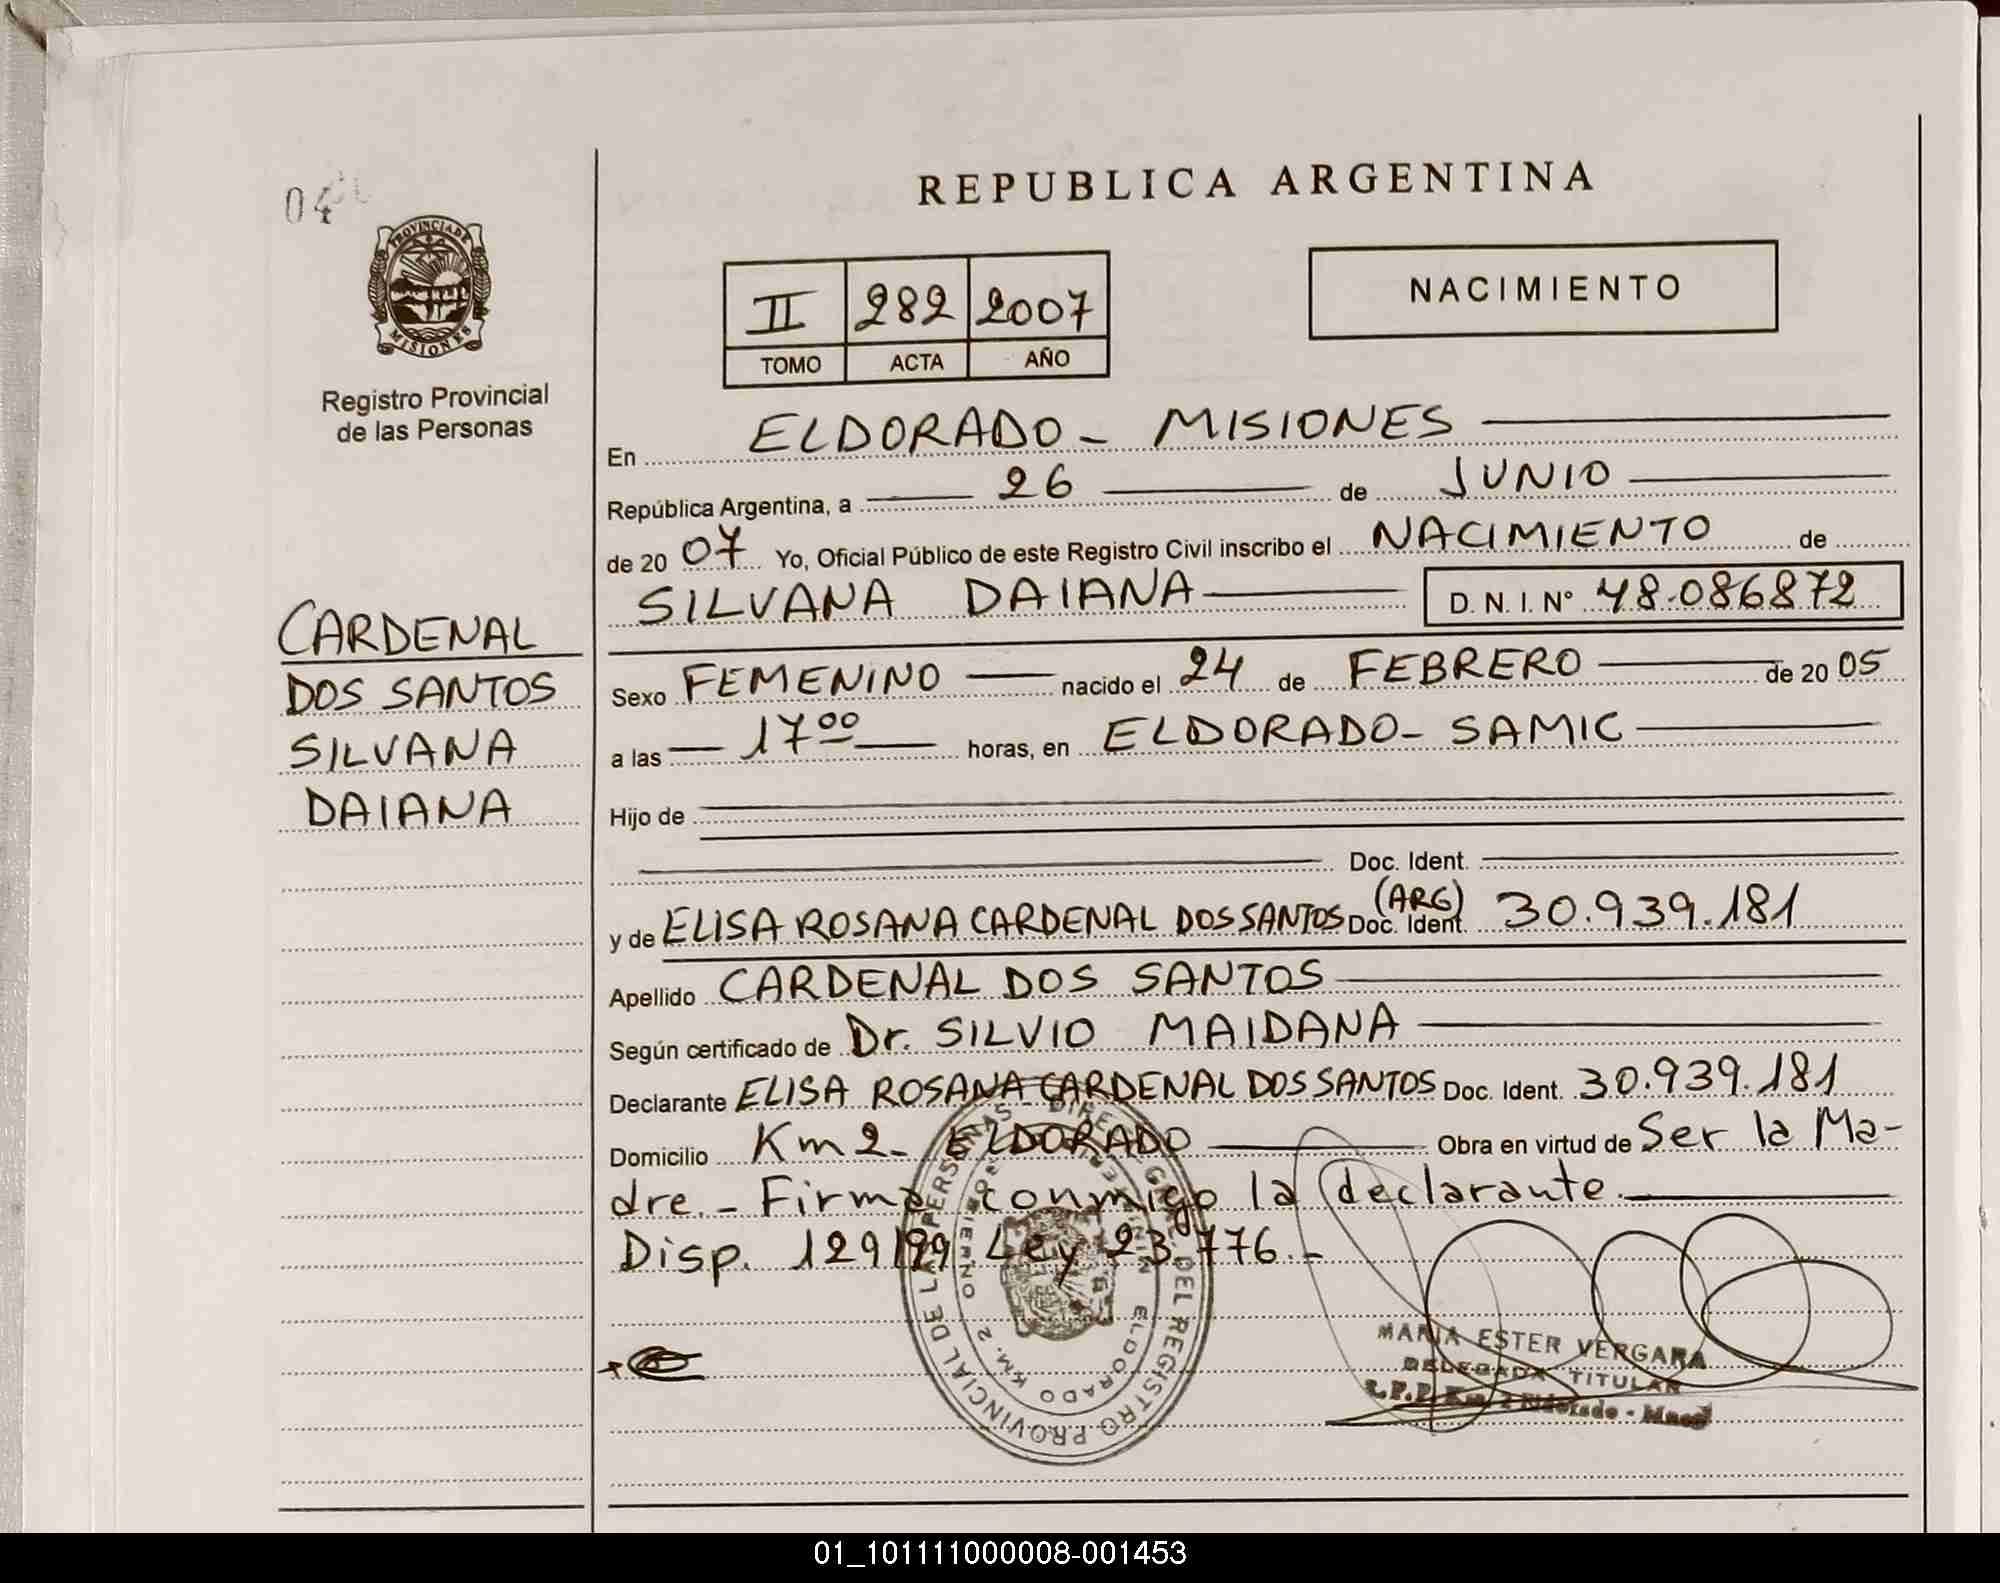 04
PROVINCIA DE
MISIONES
Registro Provincial
de las Personas
CARDENAL
DOS SANTOS
SILVANA
DAIANA
REPUBLICA ARGENTINA
II 282 2007
TOMO ACTA AÑO
NACIMIENTO
En ELDORADO - MISIONES
República Argentina, a 26 de JUNIO
de 2007 Yo, Oficial Público de este Registro Civil inscribo el NACIMIENTO de
SILVANA DAIANA D. N. I. N° 48.086872
Sexo FEMENINO nacido el 24 de FEBRERO de 2005
a las 17 00 horas, en ELDORADO - SAMIC
Hijo de
Doc. Ident.
y de ELISA ROSANA CARDENAL DOS SANTOS Doc. Ident. (ARG) 30.939.181
Apellido CARDENAL DOS SANTOS
Según certificado de Dr. SILVIO MAIDANA
Declarante ELISA ROSANA CARDENAL DOS SANTOS Doc. Ident. 30.939.181
Domicilio Km 2 - ELDORADO Obra en virtud de Ser la Ma-
dre. - Firma conmigo la declarante.
Disp. 129/99 Ley 23.776. -
DIREC. GRAL. DEL REGISTRO PROVINCIAL DE LAS PERSONAS
ELDORADO KM. 2
MARIA ESTER VERGARA
DELEGADA TITULAR
R.P.P. Km. 2 Eldorado - Mnes
01_101111000008-001453